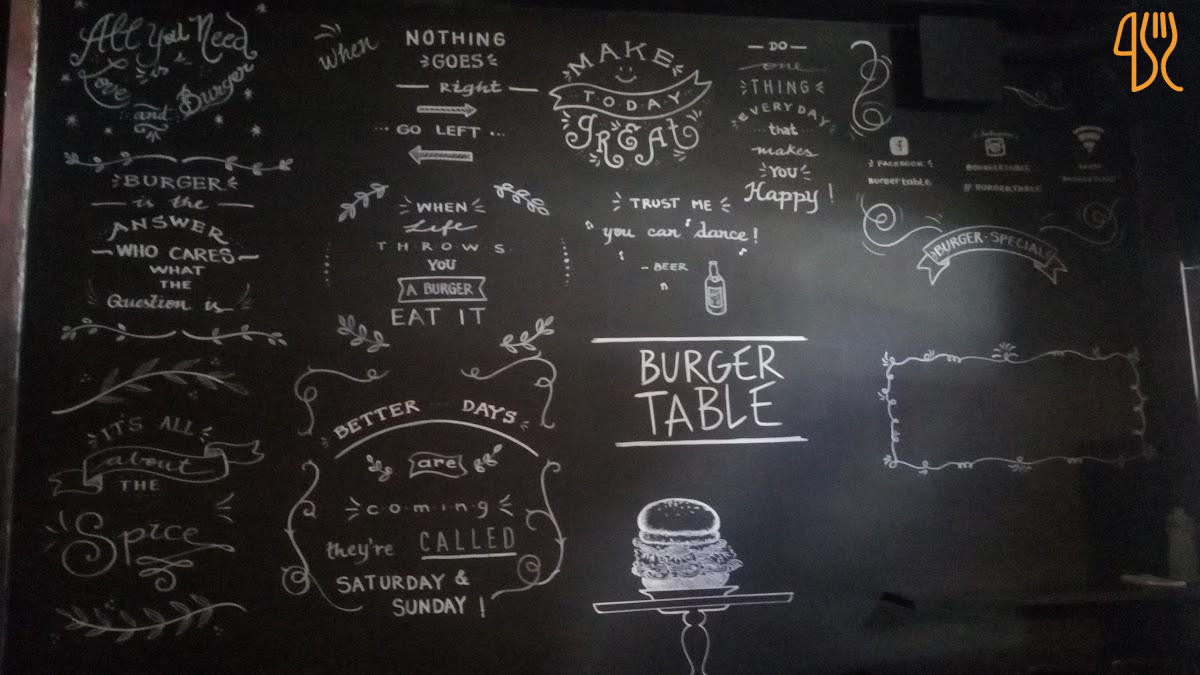 All You Need
is
Love
and Burger
BURGER
is the
ANSWER
WHO CARES
WHAT
THE
Question is
IT'S ALL
about
THE
Spice
When NOTHING
GOES
Right
GO LEFT
WHEN
Life
THROWS
YOU
A BURGER
EAT IT
BETTER DAYS
are
coming
they're CALLED
SATURDAY &
SUNDAY !
MAKE
TODAY
GREAt
TRUST ME
you can dance!
- BEER
BURGER
TABLE
DO
one
THING
EVERYDAY
that
makes
YOU
Happy !
FACEBOOK
Burgertable
Instagram
@BURGERTABLE
# BURGERTABLE
BURGER-SPECIALS